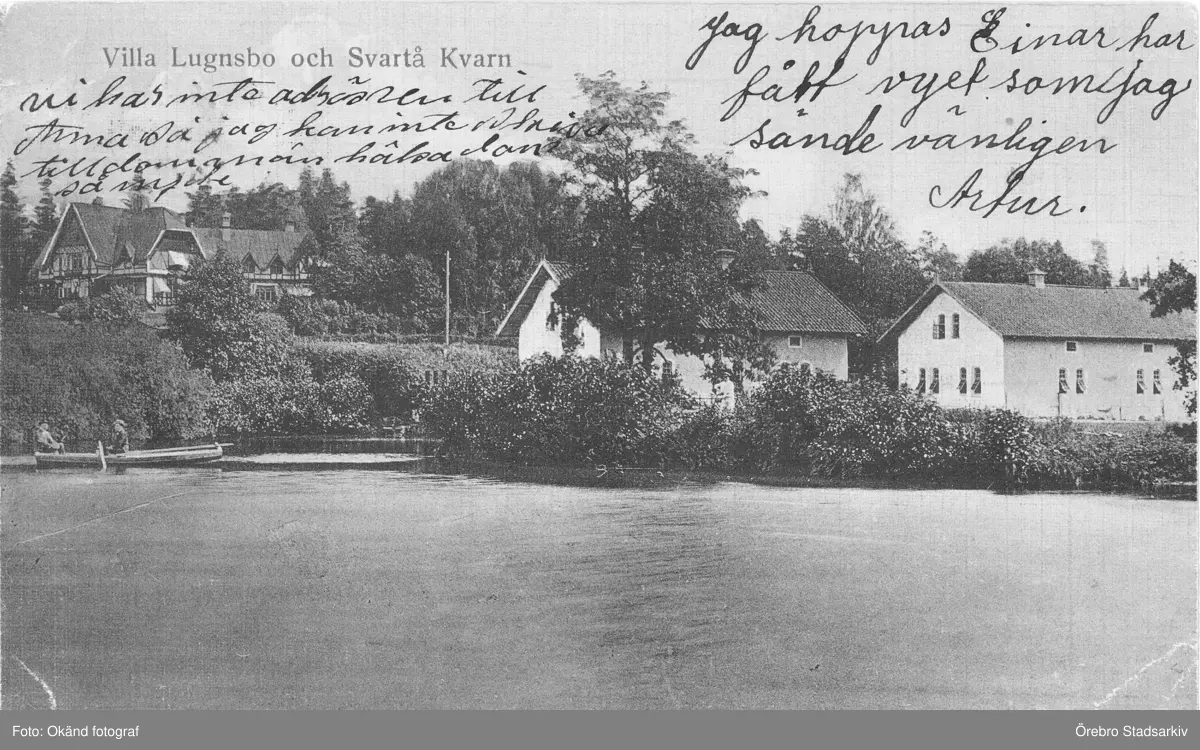 Villa Lugnsbo och Svartå Kvarn
vi har inte adrässen till
Anna så jag kan inte skriva
till dom men hälsa dom
så mycke
Jag hoppas Einar har
fått vyet som jag
sände vänligen
Artur.
Foto: Okänd fotograf
Örebro Stadsarkiv